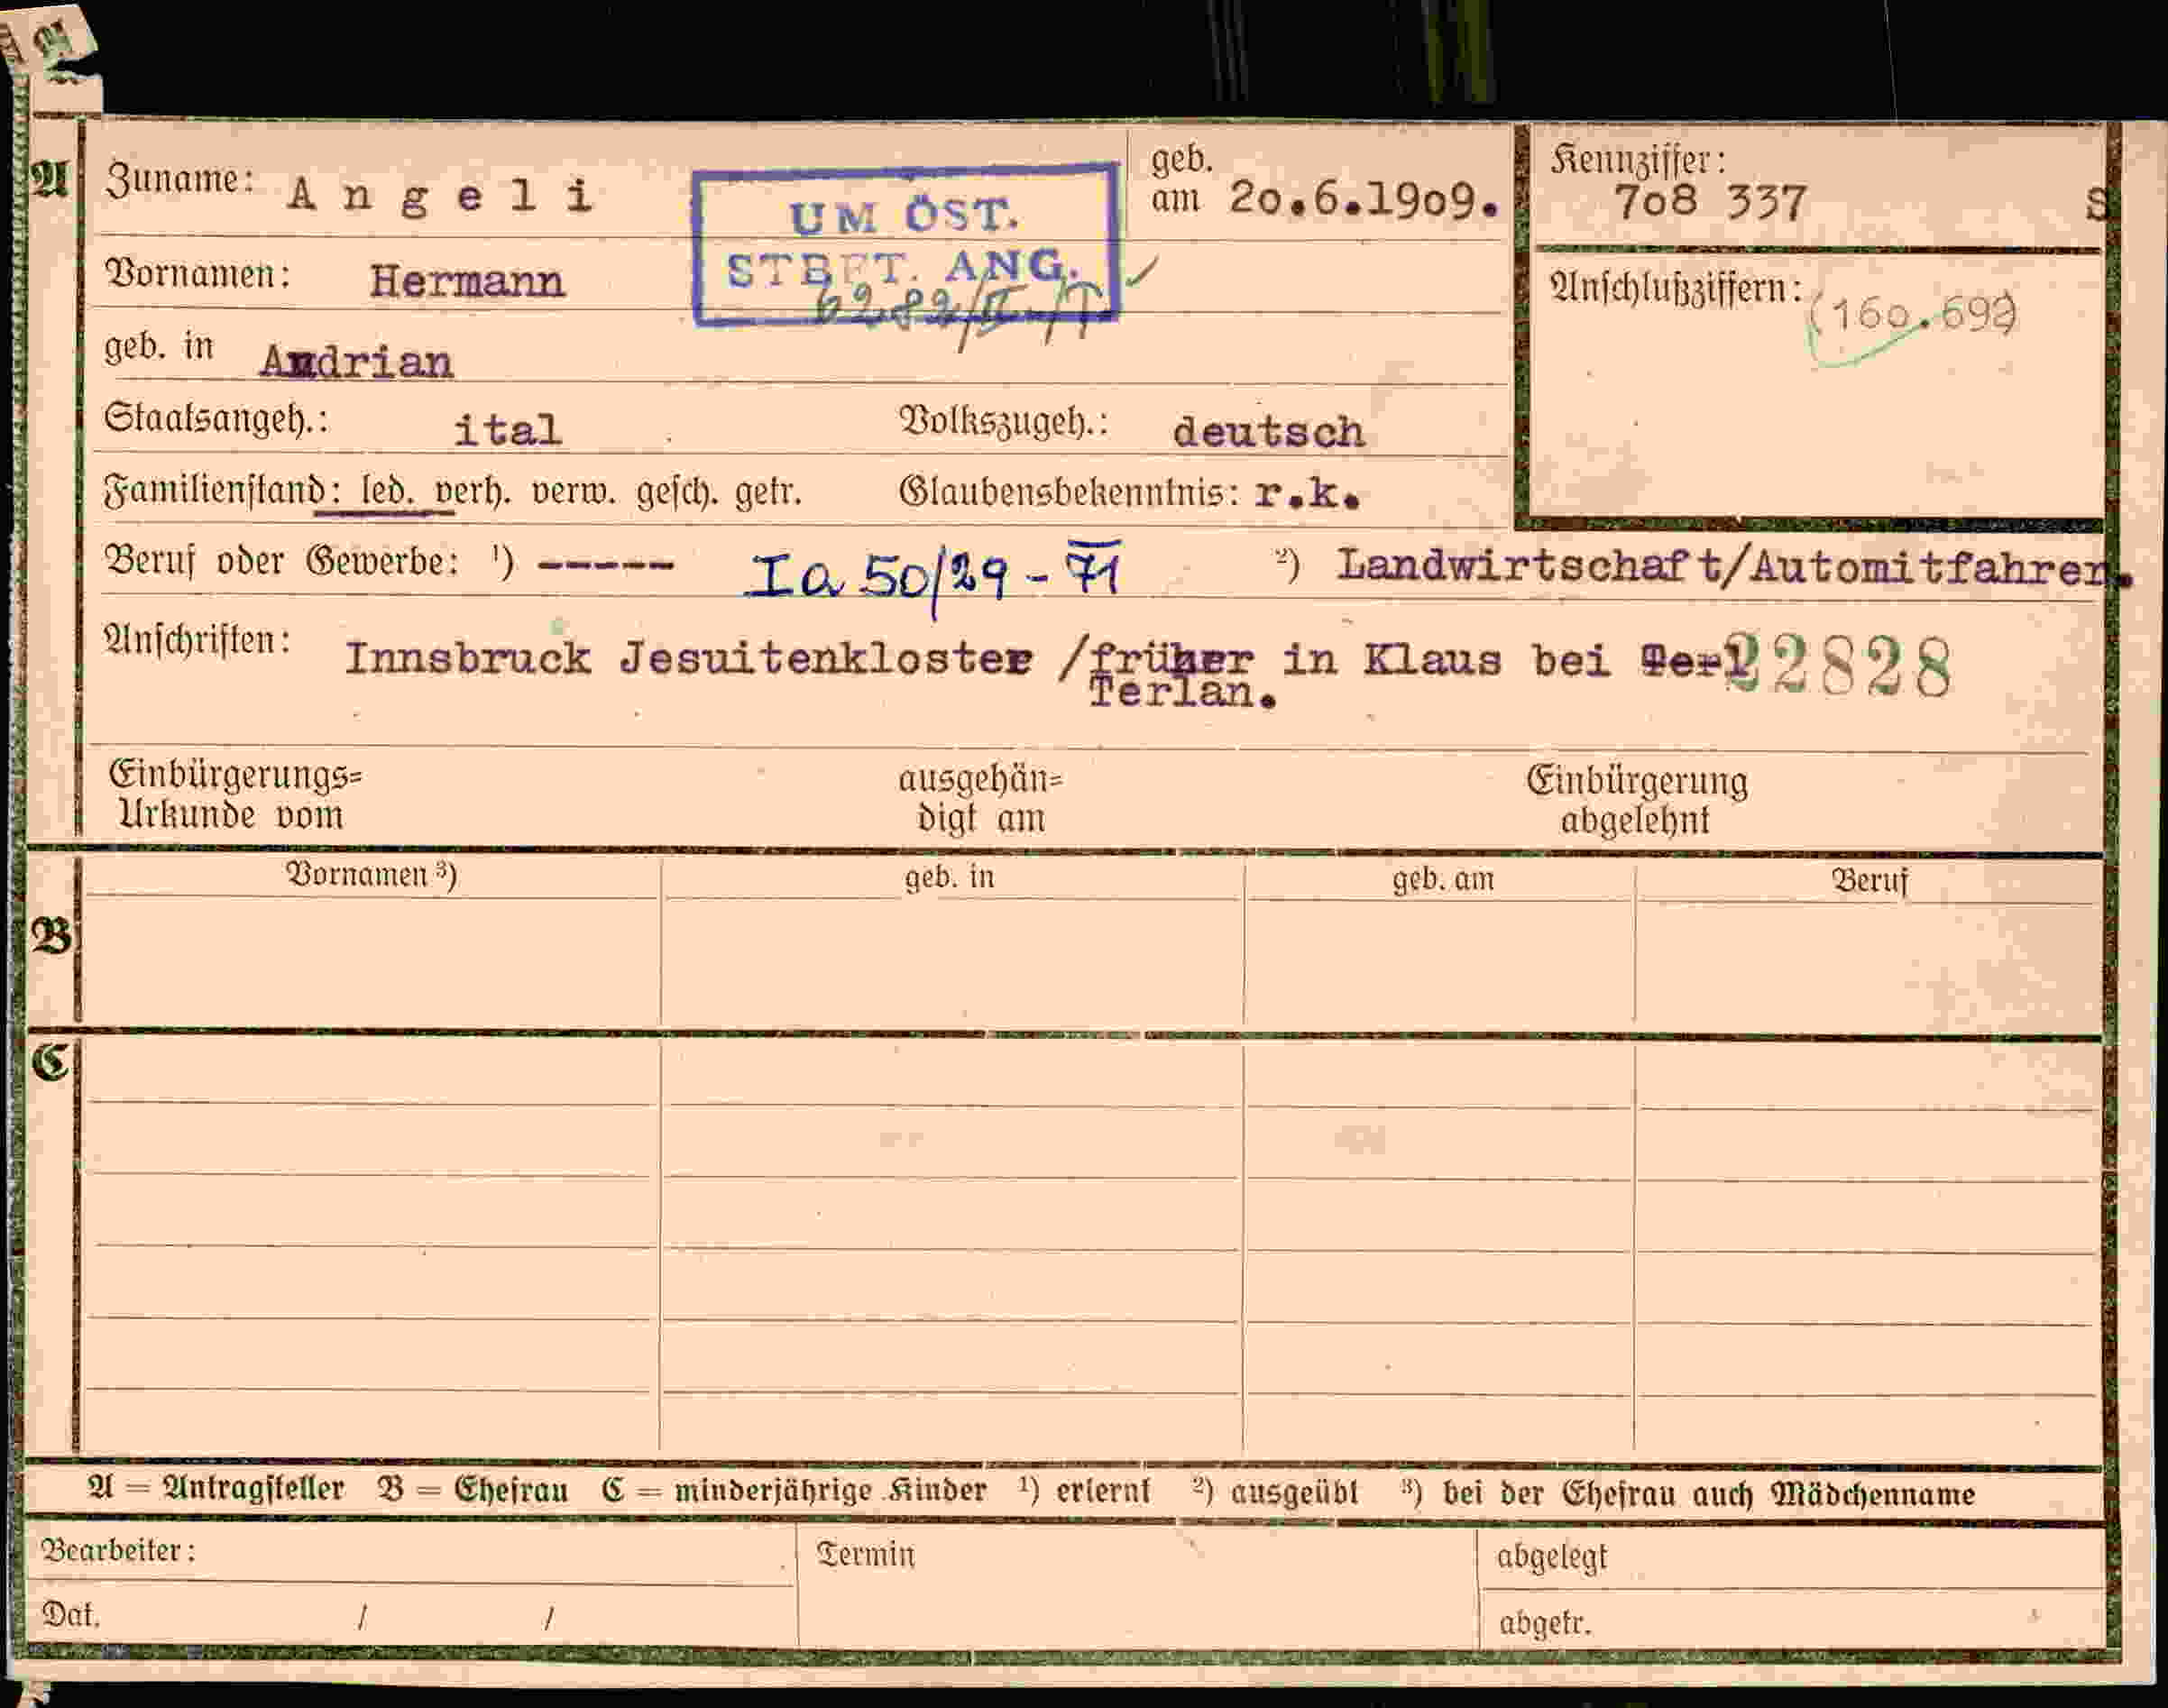 A Zuname: Angeli
UM ÖST.
STBFT. ANG.
geb.
am 20.6.1909.
Kennziffer:
708 337 S
Vornamen: Hermann
Anschlußziffern: (160.692)
geb. in Andrian
Staatsangeh.: ital Volkszugeh.: deutsch
Familienstand: led. verh. verw. gesch. getr. Glaubensbekenntnis: r.k.
Beruf oder Gewerbe: ¹) ----- Ia 50/29-71 ²) Landwirtschaft/Automitfahrer.
Anschriften: Innsbruck Jesuitenkloster /früher in Klaus bei Terl 22828
Terlan.
Einbürgerungs=
Urkunde vom
ausgehän=
digt am
Einbürgerung
abgelehnt
Vornamen ³) geb. in geb. am Beruf
B
C
A = Antragsteller B = Ehefrau C = minderjährige Kinder ¹) erlernt ²) ausgeübt ³) bei der Ehefrau auch Mädchenname
Bearbeiter: Termin abgelegt
Dat. / / abgetr.